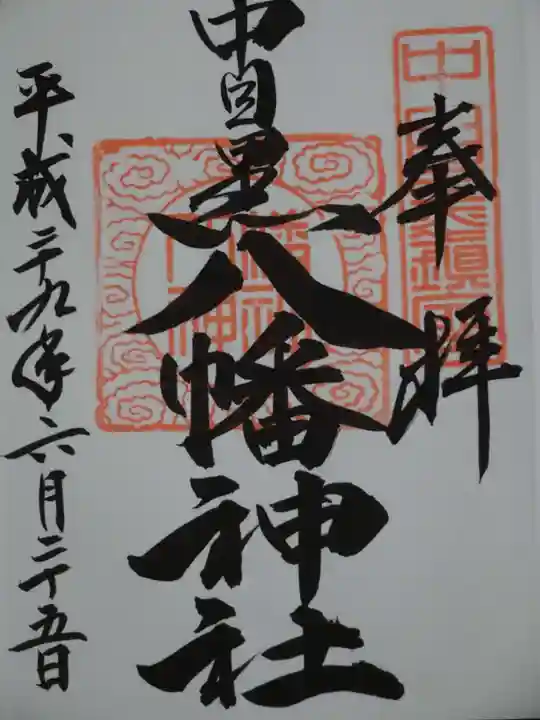 奉拝
中目黒八幡神社
平成二十九年六月二十五日